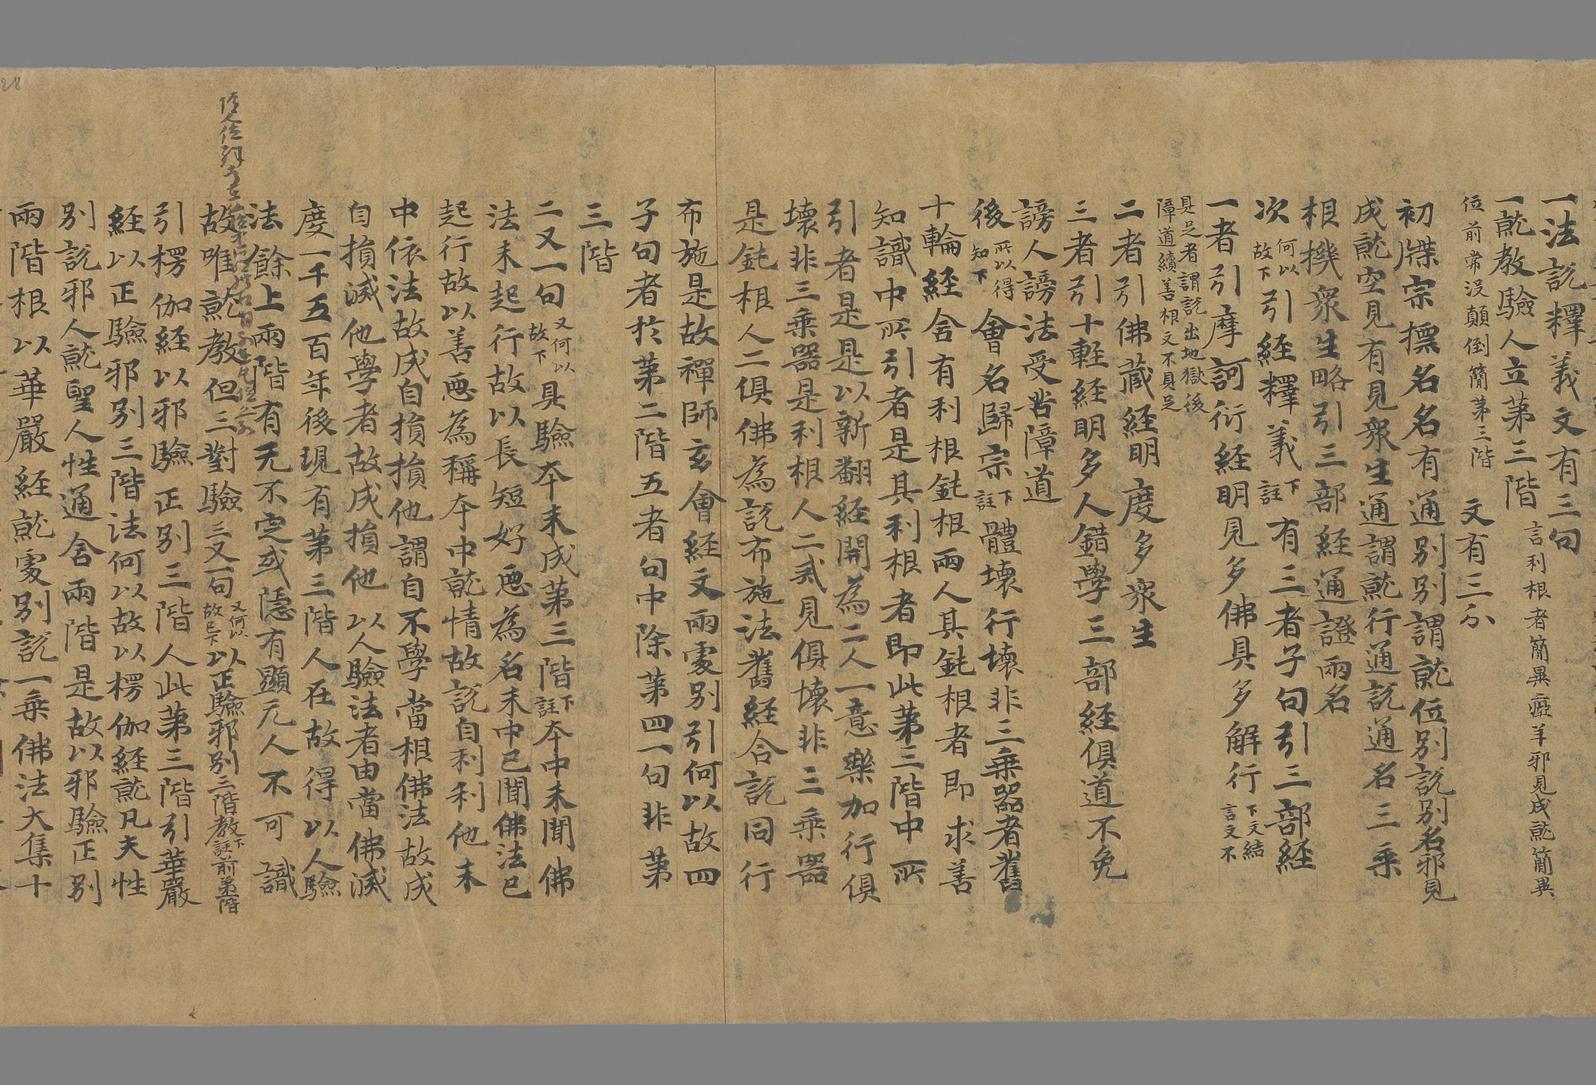 一法説釋義文有三句
一就教驗人立第三階 言利根者簡異瘂羊邪見成就簡異
位前常没顛倒簡第三階 文有三分
初牒宗標名名有通別別謂就位別説別名邪見
成就空見有見衆生通謂就行通説通名三乘
根機衆生略引三部經通證兩名
次 何以故下 引經釋義 下註 有三者子句引三部經
一者引摩訶衍經明見多佛具多解行 下文結言文不
具足者謂説出地獄後障道續善根文不具足
二者引佛藏經明度多衆生
三者引十輕經明多人錯學三部經俱道不免
謗人謗法受苦障道
後 所以得知下 會名歸宗 下註 體壞行壞非三乘器者舊
十輪經含有利根鈍根兩人其鈍根者即求善
知識中所引者是其利根者即此第三階中所
引者是是以新翻經開為二人一意樂加行俱
壞非三乘器是利根人二貳見俱壞非三乘器
是鈍根人二俱佛為説布施法舊經合説同行
布施是故禪師玄會經文兩處別引何以故四
子句者於第二階五者句中除第四一句非第
三階
二又一句 又何以故下 具驗夲末成第三階 下註 夲中未聞佛
法未起行故以長短好惡為名末中已聞佛法已
起行故以善惡為稱夲中就情故説自利利他末
中依法故成自損損他謂自不學當根佛法故成
自損滅他學者故成損他 以人驗法者由當佛滅
度一千五百年後現有第三階人在故得以人驗
法餘上兩階有无不定或隱有顯凡人不可識
故唯就教但三對驗 三又一句 又何以故已下 以正驗邪別三階教 下註 前第階
引楞伽經以邪驗正別三階人此第三階引華嚴
經以正驗邪別三階法何以故以楞伽經就凡夫性
別説邪人就聖人性通含兩階是故以邪驗正別
兩階根以華嚴經就處別説一乘佛法大集十